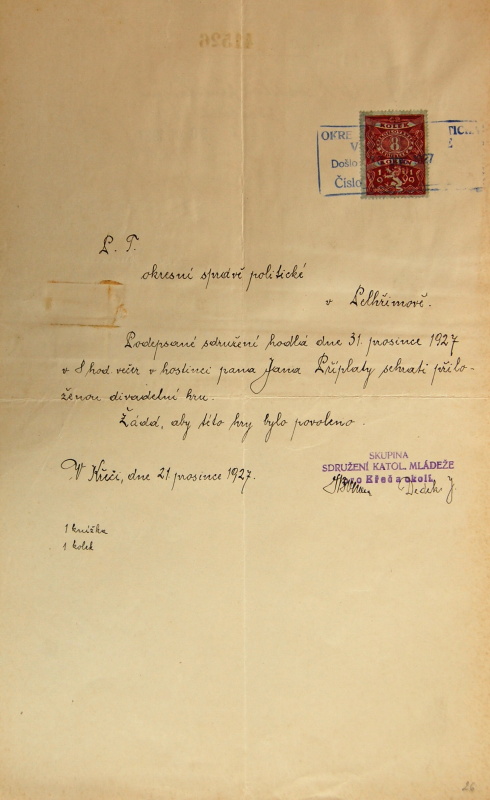 41526
KOLEK
OKRE
TICK
V
8
KORUN
Došlo
27
1919
Číslo
L. T.
okresní správě politické
v Pelhřimově.
Podepsané sdružení hodlá dne 31. prosince 1927
v 8 hod. večer v hostinci pana Jana Příplaty sehrati přilo-
ženou divadelní hru.
Žádá, aby této hry bylo povoleno.
V Křeči, dne 21. prosince 1927.
SKUPINA
SDRUŽENÍ KATOL. MLÁDEŽE
pro Křeč a okolí.
Dedek J.
1 knížka
1 kolek
26